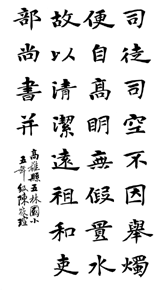 司徒司空不因舉燭
便自高明無假置水
故以清潔遠祖和吏
部尚書并
高雄縣五林國小
五年級陳